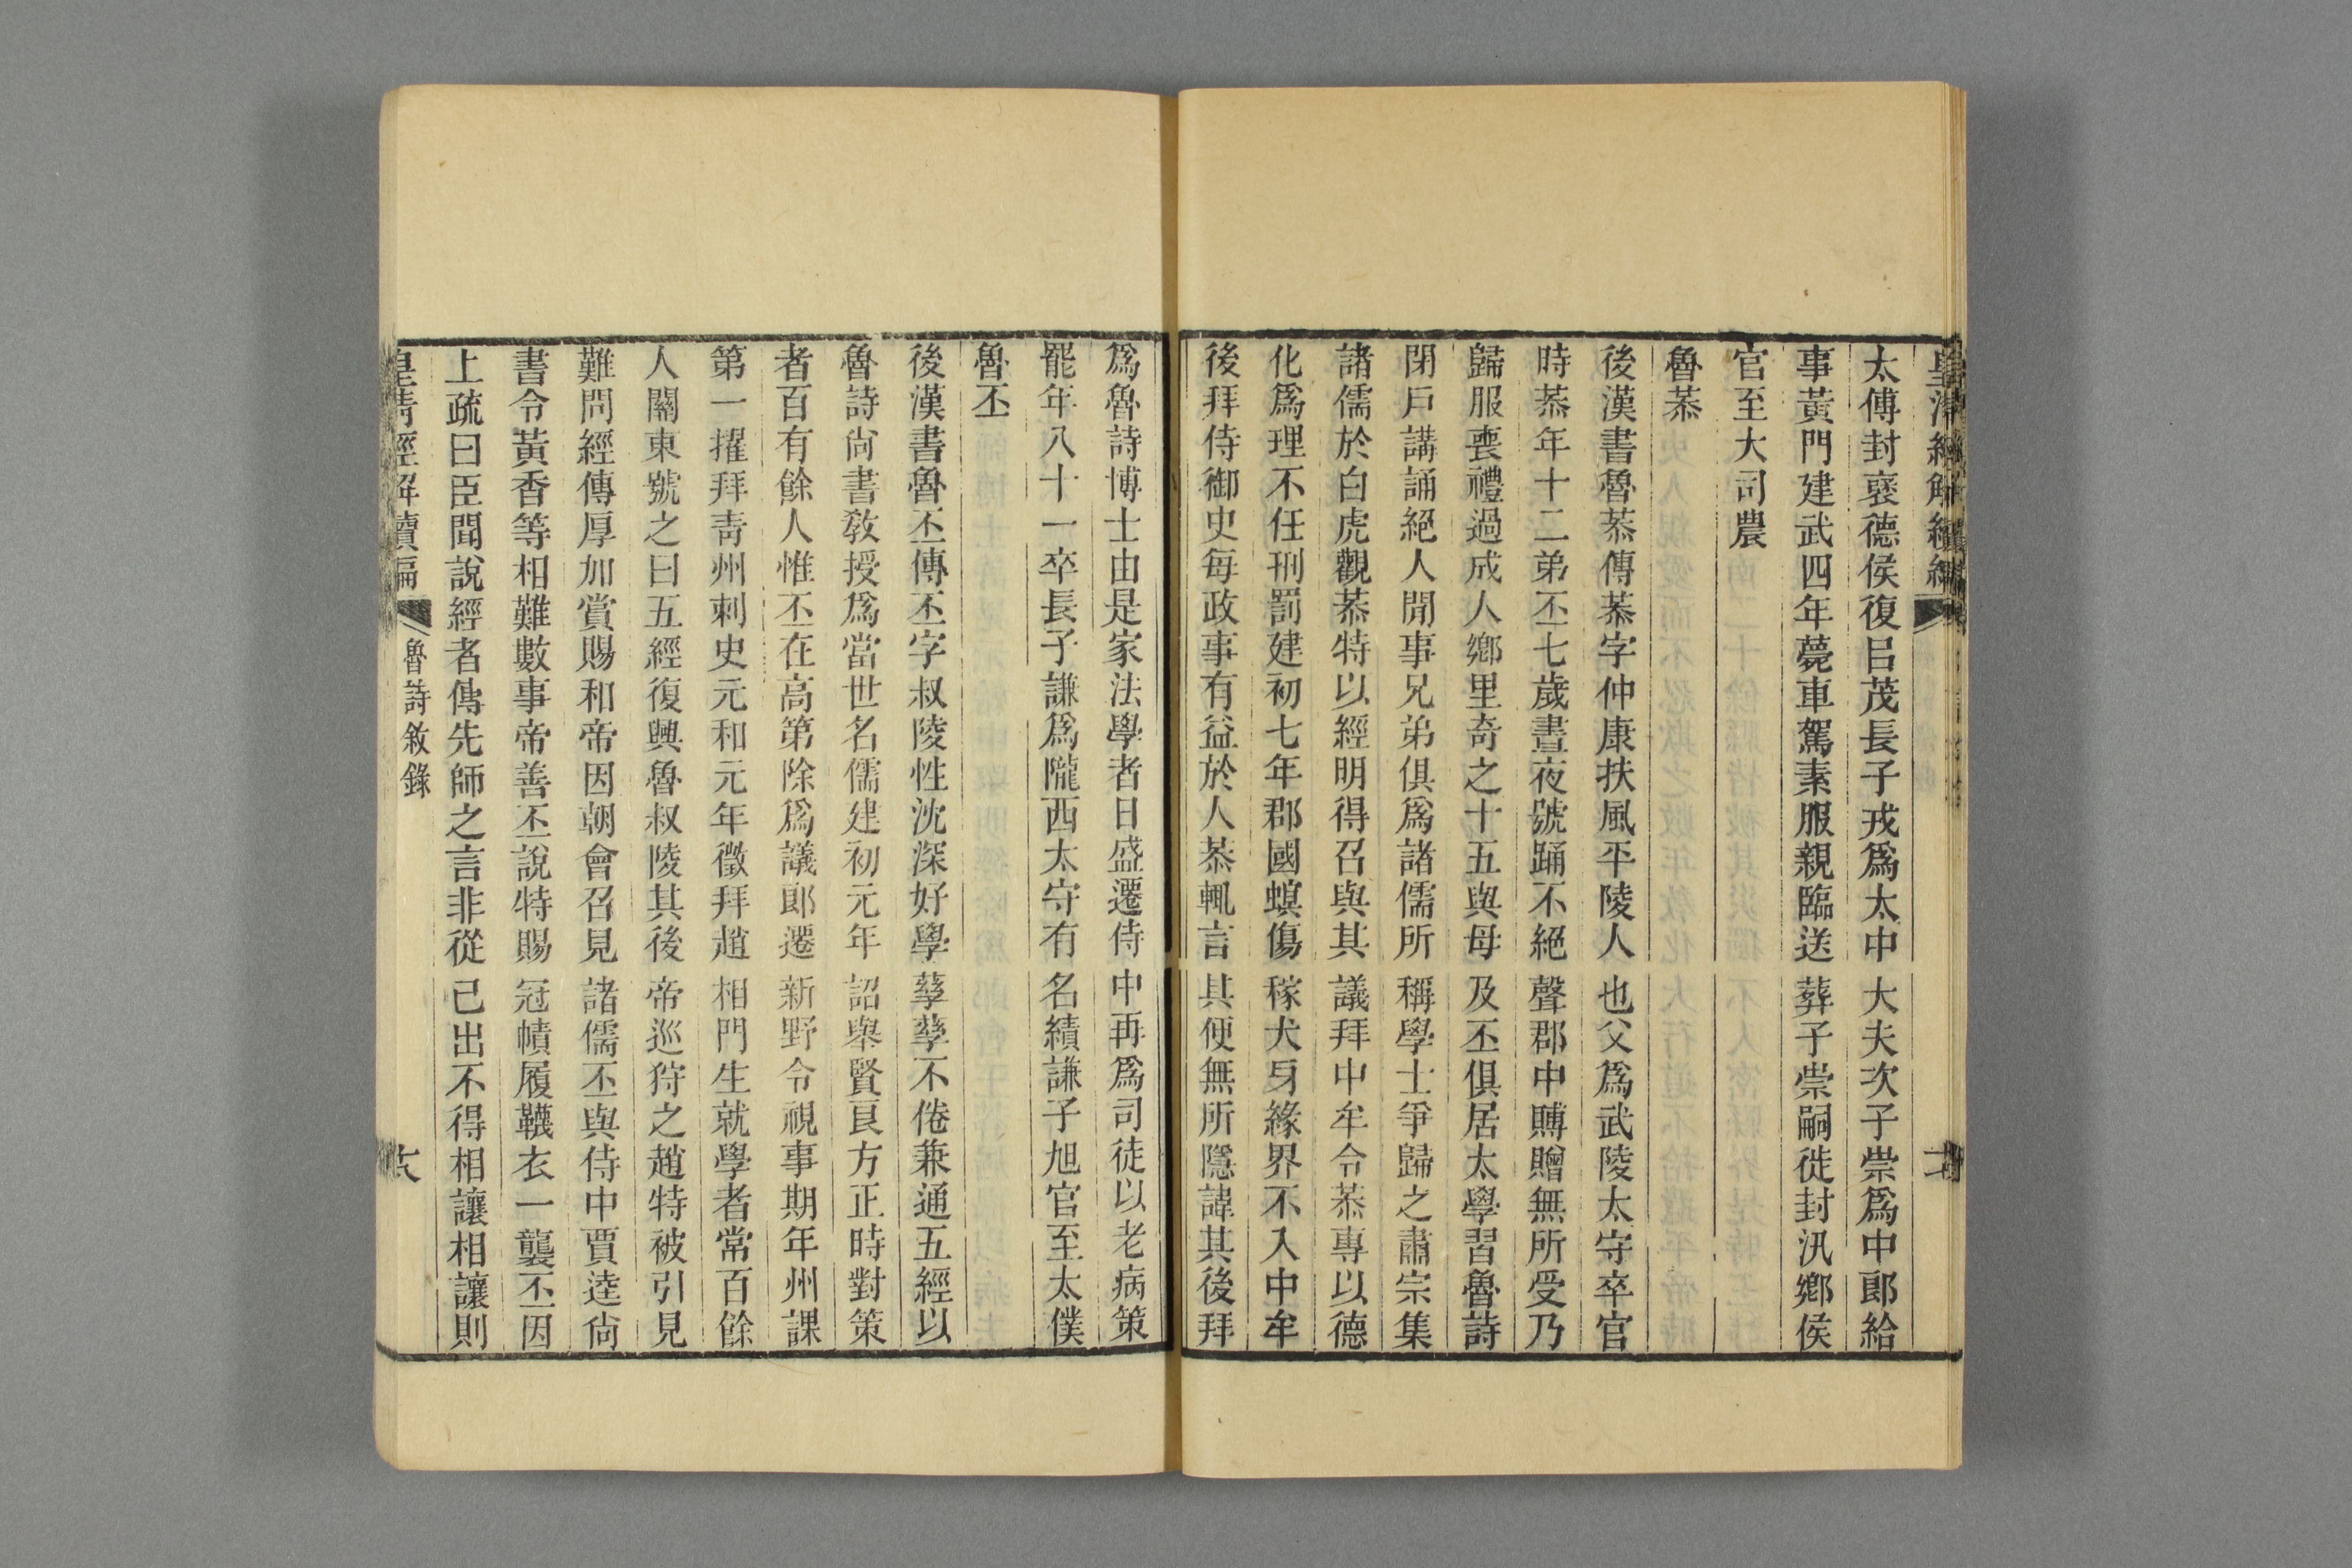 皇清經解續編
太傅封襃德侯復㠯茂長子戎爲太中大夫次子崇爲中郎給
事黃門建武四年薨車駕素服親臨送葬子崇嗣徙封汎鄉侯
官至大司農
魯恭
後漢書魯恭傳恭字仲康扶風平陵人也父爲武陵太守卒官
時恭年十二弟丕七歲晝夜號踊不絕聲郡中賻贈無所受乃
歸服喪禮過成人鄉里奇之十五與母及丕俱居太學習魯詩
閉戶講誦絕人閒事兄弟俱爲諸儒所稱學士爭歸之肅宗集
諸儒於白虎觀恭特以經明得召與其議拜中牟令恭專以德
化爲理不任刑罰建初七年郡國螟傷稼犬牙緣界不入中牟
後拜侍御史每政事有益於人恭輒言其便無所隱諱其後拜
爲魯詩博士由是家法學者日盛遷侍中再爲司徒以老病策
罷年八十一卒長子謙爲隴西太守有名績謙子旭官至太僕
魯丕
後漢書魯丕傳丕字叔陵性沈深好學孳孳不倦兼通五經以
魯詩尙書敎授爲當世名儒建初元年詔舉賢良方正時對策
者百有餘人惟丕在高第除爲議郎遷新野令視事期年州課
第一擢拜靑州刺史元和元年徵拜趙相門生就學者常百餘
人關東號之曰五經復興魯叔陵其後帝巡狩之趙特被引見
難問經傳厚加賞賜和帝因朝會召見諸儒丕與侍中賈逵尙
書令黃香等相難數事帝善丕說特賜冠幘履韤衣一襲丕因
上疏曰臣聞說經者傳先師之言非從己出不得相讓相讓則
皇清經解續編
魯詩敘錄